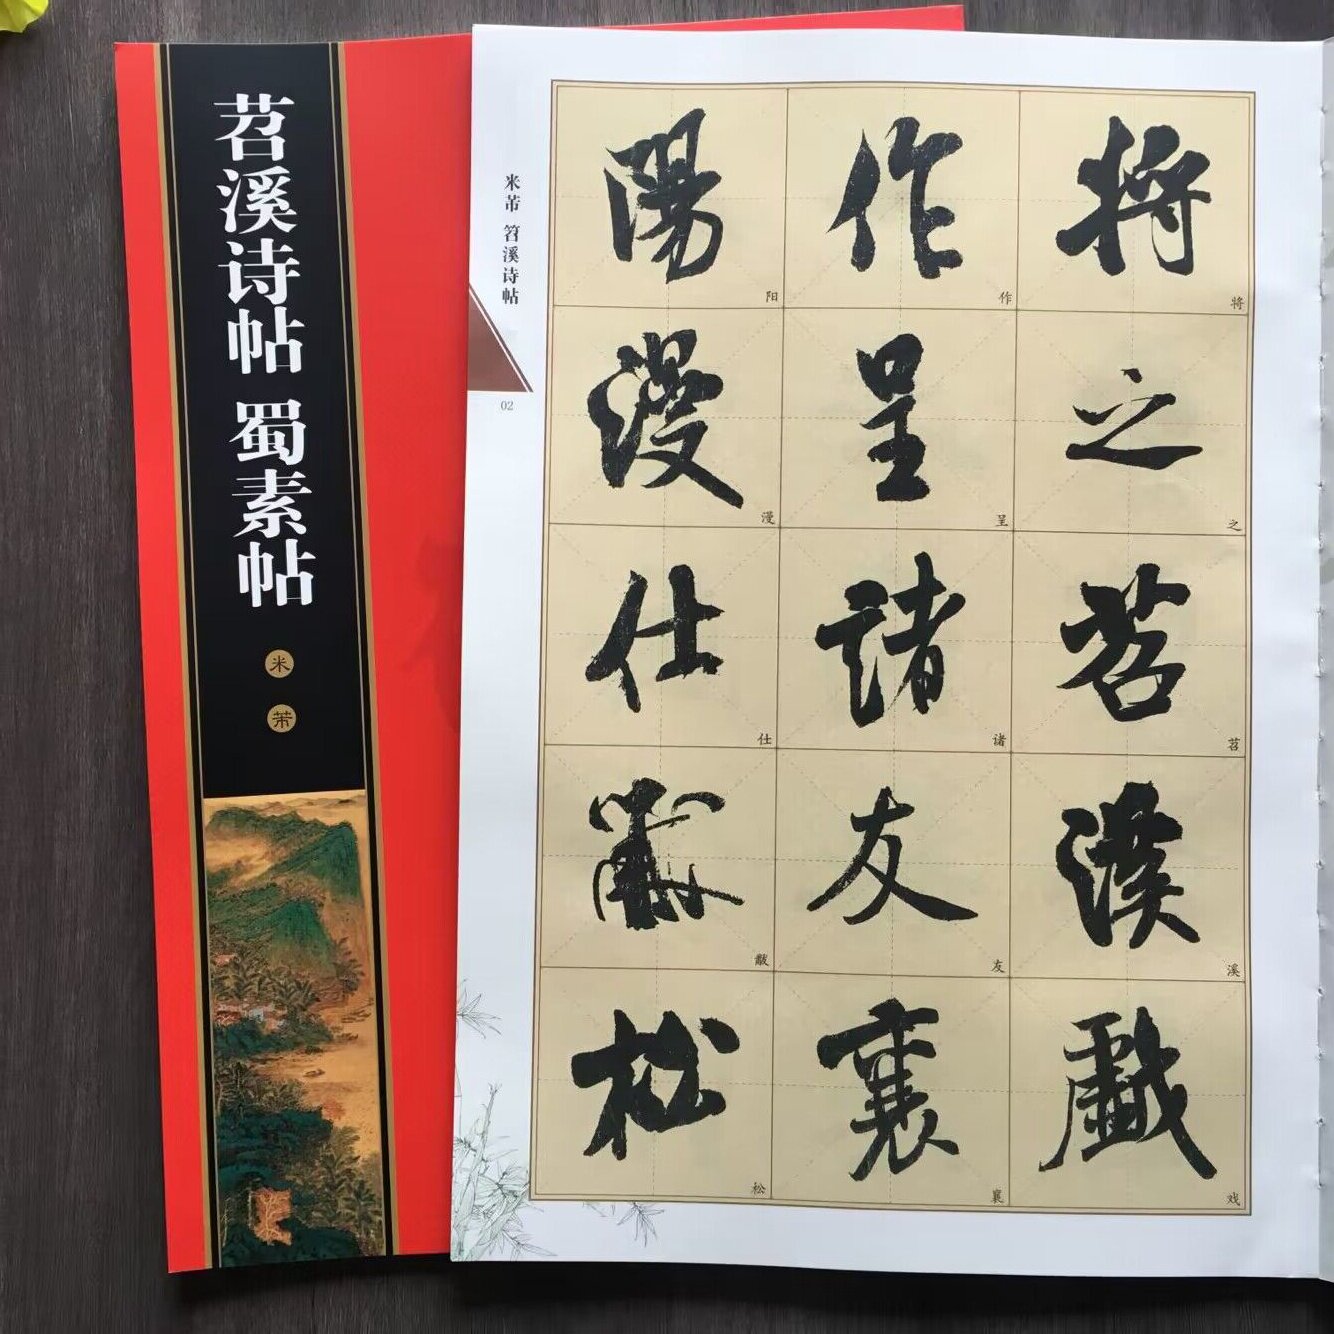 苕溪诗帖 蜀素帖
米
芾
米芾 苕溪诗帖
02
將之苕溪戲
作呈諸友襄
陽漫仕黻松
将
之
苕
溪
戏
作
呈
诸
友
襄
阳
漫
仕
黻
松